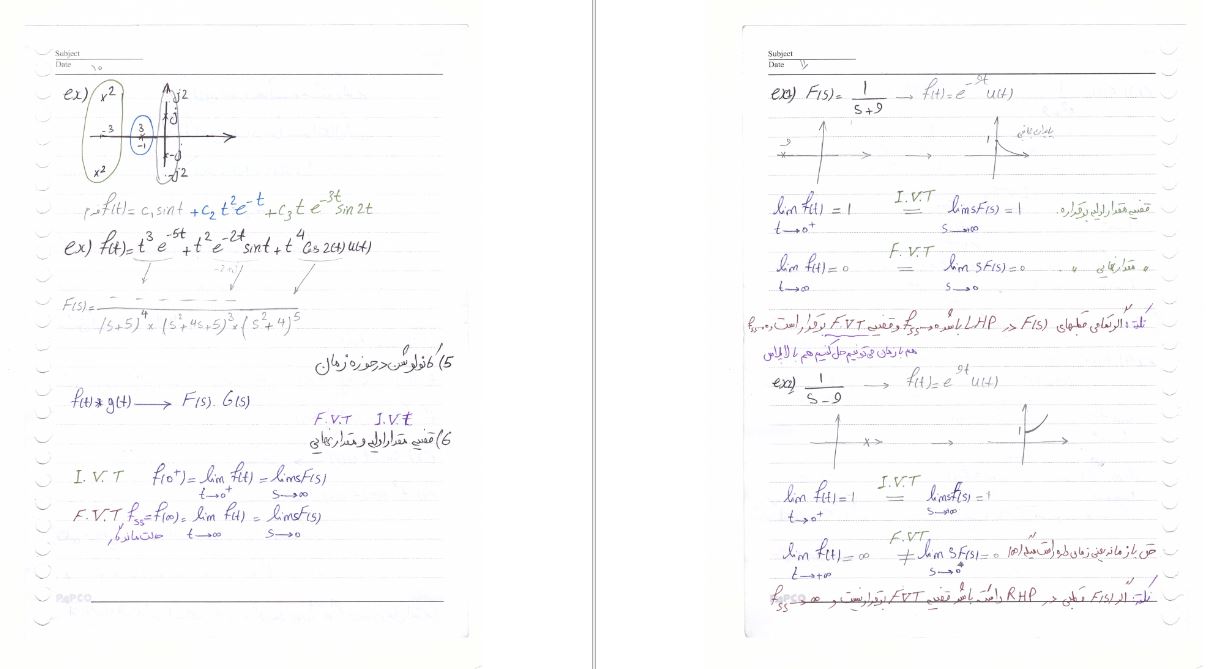 Subject
Date ۱۰
ex) x2 j2
xj
-3 3 -1
-j
x2 -j2
f(t) = c₁sint + c₂t²e⁻ᵗ + c₃te⁻³ᵗsin2t
ex) f(t) = t³e⁻⁵ᵗ + t²e⁻²ᵗsint + t⁴Cos2(t)u(t)
F(s) = - - - - - - / (s+5)⁴ × (s²+4s+5)³ × (s²+4)⁵
5) کانولوشن در حوزه زمان
f(t)*g(t) → F(s).G(s)
F.V.T I.V.T
6) قضیه مقدار اولیه و مقدار نهایی
I.V.T f(0⁺) = lim f(t) = lim sF(s)
t→0⁺ s→∞
F.V.T f_ss = f(∞) = lim f(t) = lim sF(s)
حالت ماندگار t→∞ s→0
PAPCO
Subject
Date ۱۱
ex1) F(s) = 1/(s+9) → f(t) = e⁻⁹ᵗu(t)
-9 x → 1
lim f(t) = 1 I.V.T = lim sF(s) = 1 قضیه مقدار اولیه برقراره.
t→0⁺ s→∞
lim f(t) = 0 F.V.T = lim sF(s) = 0 " مقدار نهایی "
t→∞ s→0
نکته: اگر تمامی قطبهای F(s) در LHP باشد و قضیه F.V.T برقرار است
هم با زمان می توانیم حل کنیم هم با لاپلاس
ex2) 1/(s-9) → f(t) = e⁹ᵗu(t)
x → 1
lim f(t) = 1 I.V.T = lim sF(s) = 1
t→0⁺ s→∞
lim f(t) = ∞ F.V.T ≠ lim sF(s) = 0
t→+∞ s→0
نکته: اگر F(s) قطبی در RHP داشته باشد قضیه F.V.T برقرار نیست و f_ss → ∞
PAPCO